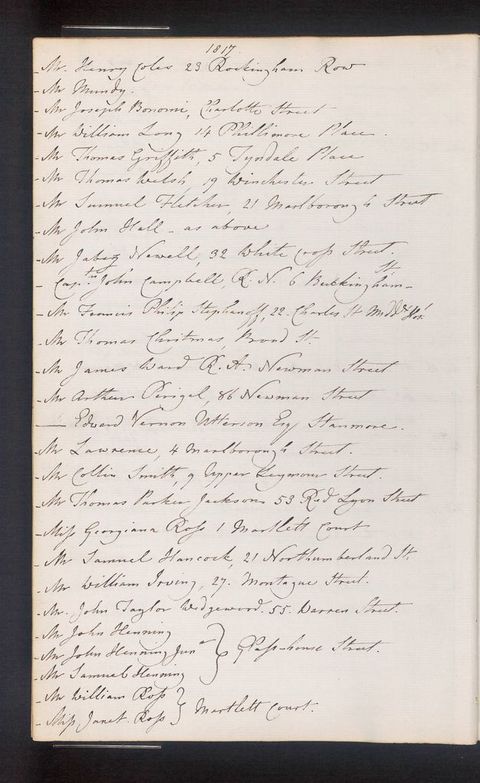 1817.
- Mr. Henry Coles 23 Rockingham Row
- Mr Mundy.
- Mr Joseph Bonomi, Charlotte Street
- Mr William Long 14 Phillimore Place.
- Mr Thomas Griffith, 5 Tyndale Place
- Mr Thomas Welsh, 9 Winchester Street
- Mr Samuel Fletcher 21 Marlborough Street
- Mr John Hall - as above
- Mr Jabez Newell, 32 White Street.
- Captn. John Campbell, R. N. 6 Buckingham- St
- Mr Francis Philip Stephanoff, 22. Charles St Middx Hosl.
- Mr Thomas Christmas, Broad St.
- Mr James Ward R. A. Newman Street
- Mr Arthur Perigal, 86 Newman Street
- Edward Vernon Utterson Esq Stanmore.
- Mr Lawrence, 4 Marlborough Street.
- Mr Collin Smith, 9 Upper Seymour Street.
- Mr Thomas Parker Jackson 53 Red Lyon Street
- Miss Georgiana Ross 1 Martlett Court
- Mr Samuel Hancock, 21 Northumberland St.
- Mr William Irving, 27. Montague Street.
- Mr. John Taylor Wedgeword. 55. Warren Street.
- Mr John Henning
- Mr John Henning Junr } Glass-house Street.
- Mr Samuel Henning
- Mr William Ross
- Miss Janet Ross } Martlett Court.